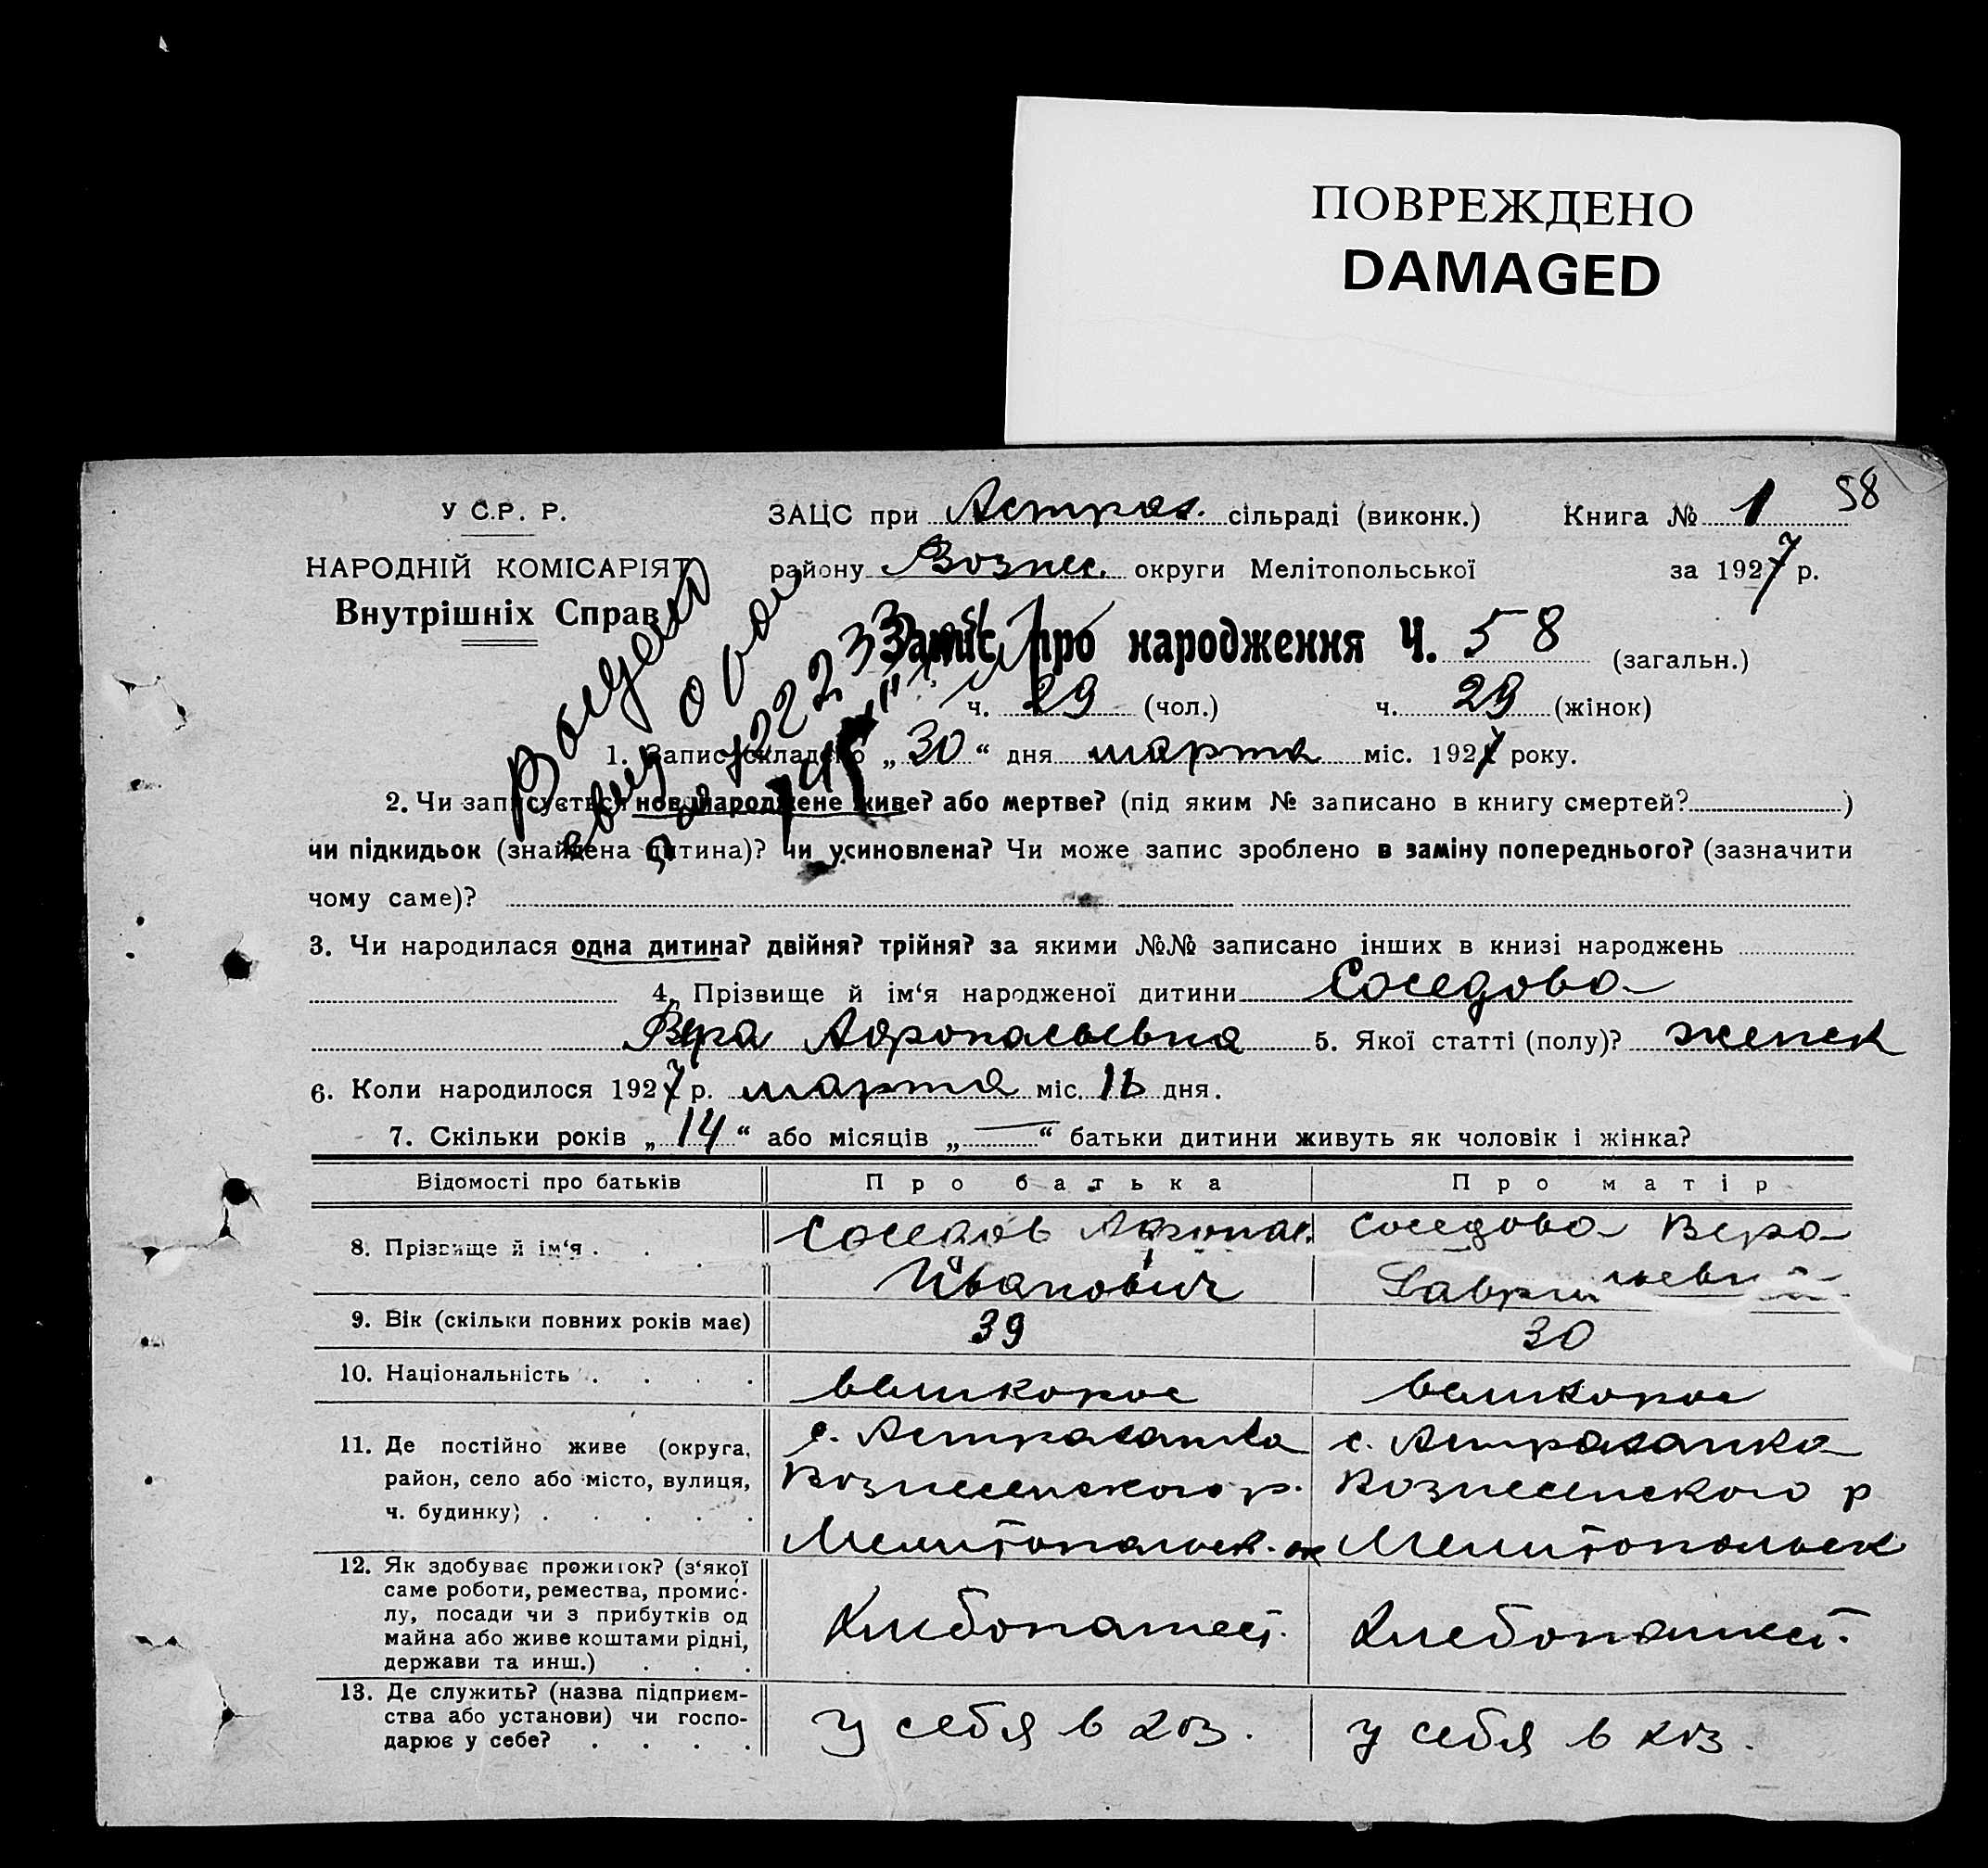 ПОВРЕЖДЕНО
DAMAGED
58
У С.Р. Р.
ЗАЦС при Астрах. сільраді (виконк.) Книга № 1
НАРОДНІЙ КОМІСАРІЯТ
району Вознес. округи Мелітопольської за 1927 р.
Внутрішніх Справ
Запис про народження Ч. 58 (загальн.)
ч. 29 (чол.) ч. 29 (жінок)
1. Запис складено „30“ дня марта міс. 1927 року.
2. Чи записується новонароджене живе? або мертве? (під яким № записано в книгу смертей? )
чи підкидьок (знайдена дитина)? чи усиновлена? Чи може запис зроблено в заміну попереднього? (зазначити
чому саме)?
3. Чи народилася одна дитина? двійня? трійня? за якими №№ записано інших в книзі народжень
4. Прізвище й ім‘я народженої дитини Соседова
Вера Афонасьевна 5. Якої статті (полу)? женск
6. Коли народилося 1927 р. марта міс. 16 дня.
7. Скільки років „14“ або місяців „—“ батьки дитини живуть як чоловік і жінка?
Відомості про батьків Про батька Про матір
8. Прізвище й ім‘я . . Соседов Афонас. Соседова Вера
Иванович
9. Вік (скільки повних років має) 39 30
10. Національність . . . . великорос великорос
11. Де постійно живе (округа, с. Астраханка с. Астраханка
район, село або місто, вулиця, Вознесенского р. Вознесенского р
ч. будинку) . . . . . Мелитопольск. ок Мелитопольск
12. Як здобуває прожиток? (з‘якої
саме роботи, ремества, промис-
лу, посади чи з прибутків од Хлебопашест. Хлебопашест.
майна або живе коштами рідні,
держави та инш.) . . .
13. Де служить? (назва підприєм-
ства або установи) чи госпо- У себя в хоз. У себя в хоз.
дарює у себе? . . . .